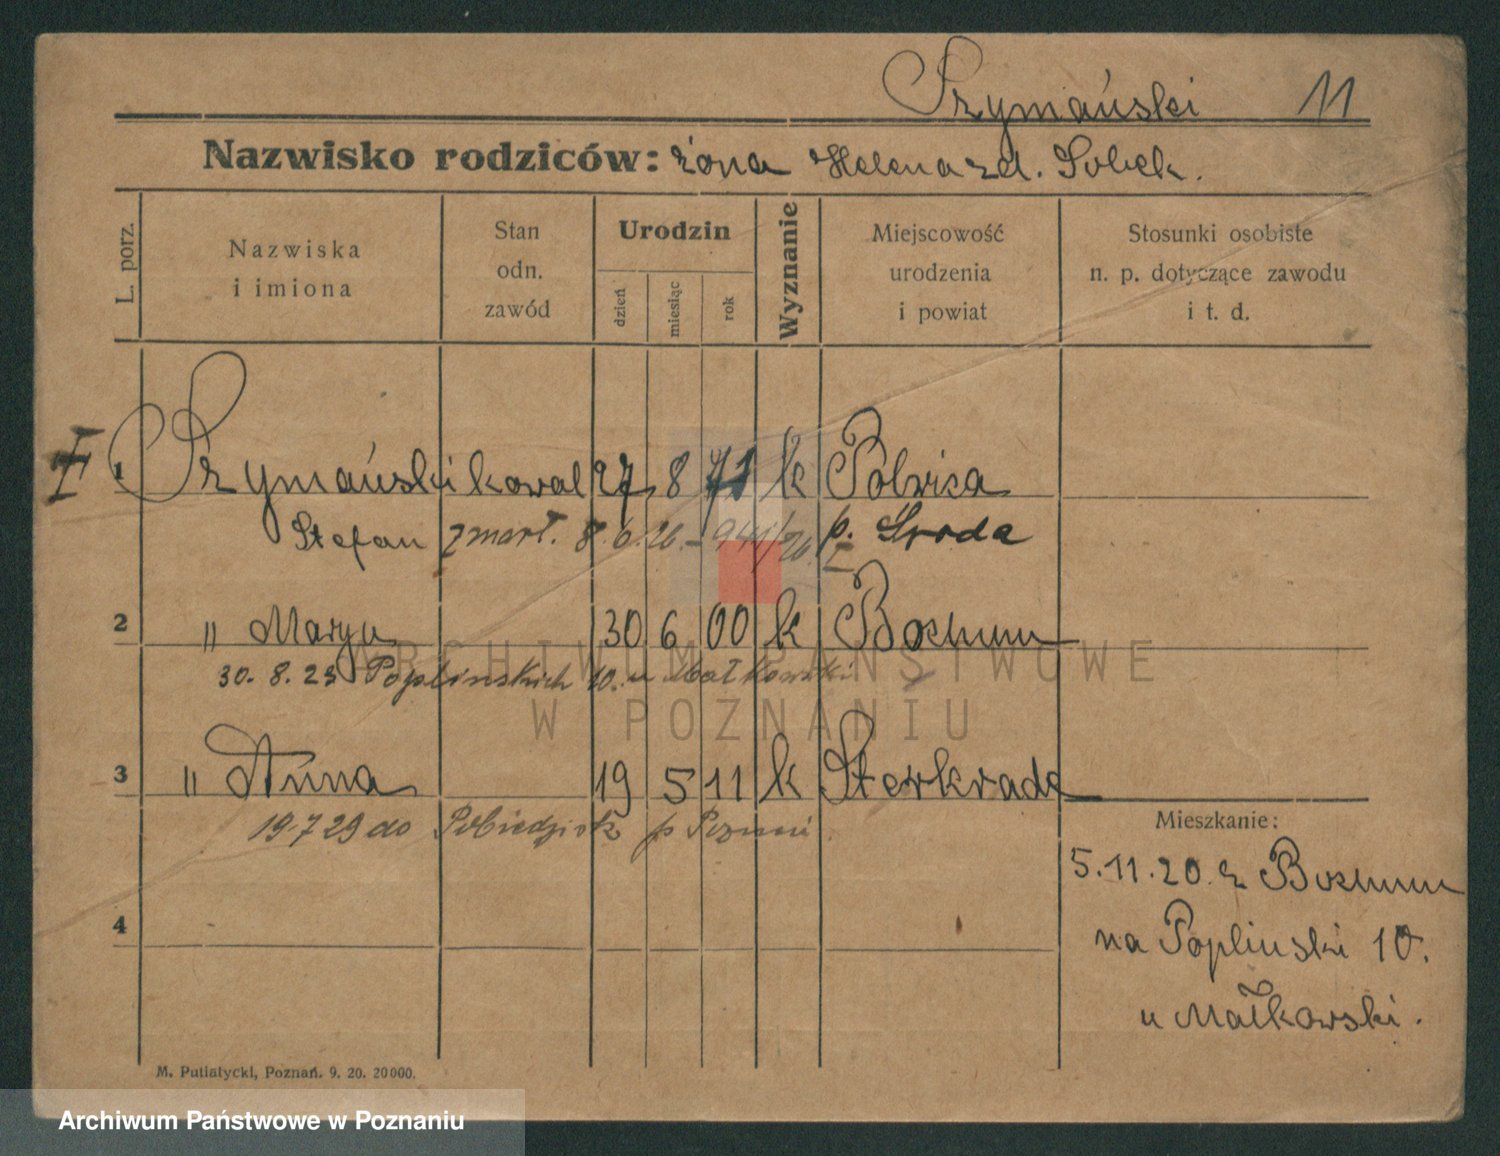 Szymański 11
Nazwisko rodziców: żona Helena zd. Sobek.
L. porz.
Nazwiska i imiona
Stan odn. zawód
Urodzin
dzień
miesiąc
rok
Wyznanie
Miejscowość urodzenia i powiat
Stosunki osobiste n. p. dotyczące zawodu i t. d.
I 1 Szymański kowal 27 8 71 k Polwica
Stefan zmarł. 8.6.26.- 941/26 p. Środa
2 " Marya 30 6 00 k Bochum
30. 8. 23 Poplińskich 10. u Małkowski
3 " Anna 19 5 11 k Sterkrade
19.7 29 do Pobiedzisk p Poznań
Mieszkanie:
5.11.20. z Bochum
na Popliński 10.
u Małkowski.
4
M. Putiatycki, Poznań. 9. 20. 20000.
ARCHIWUM PAŃSTWOWE
W POZNANIU
Archiwum Państwowe w Poznaniu